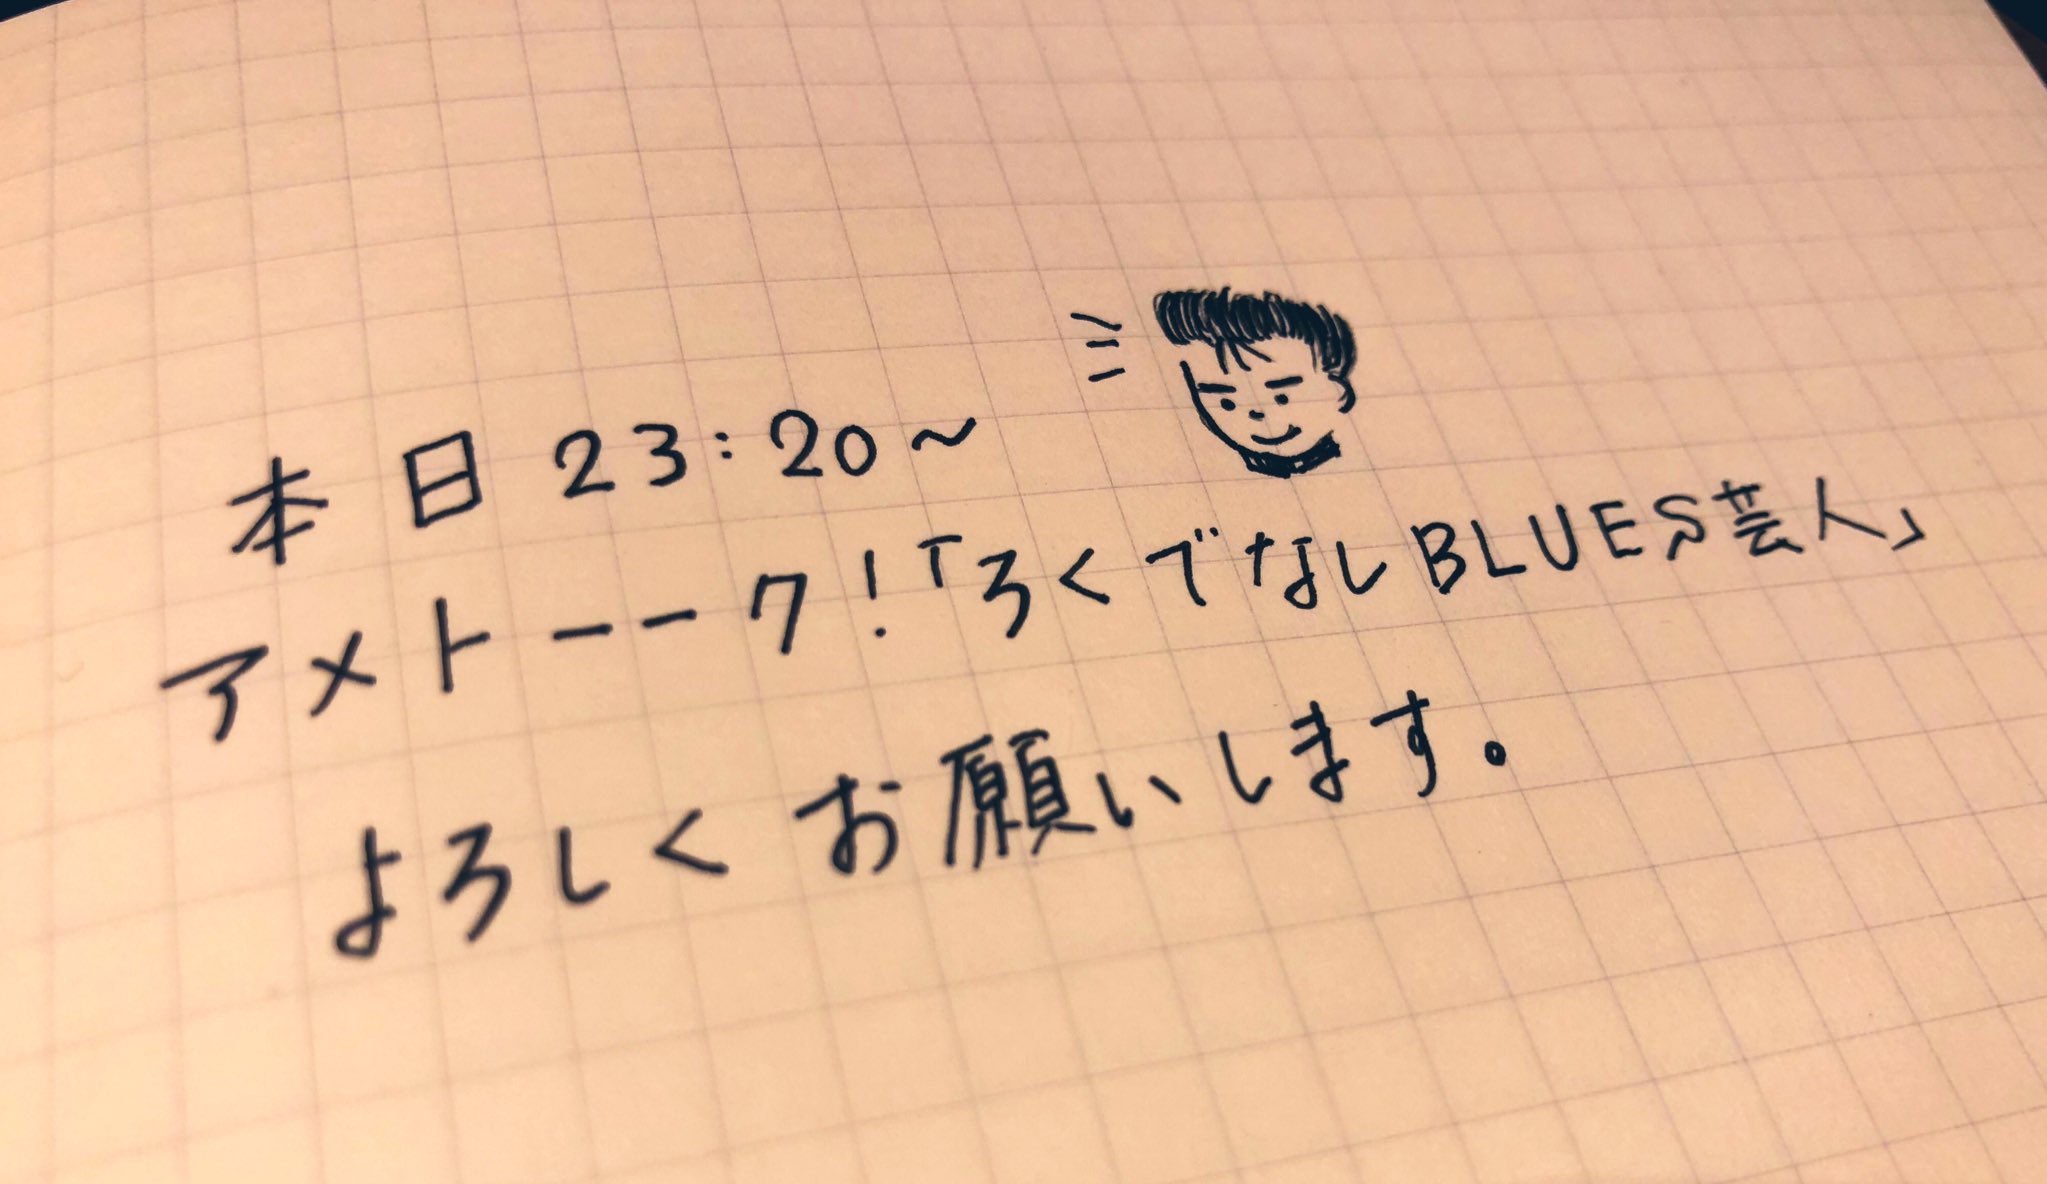 本日23:20～
アメトーーク!「ろくでなしBLUES芸人」
よろしくお願いします。